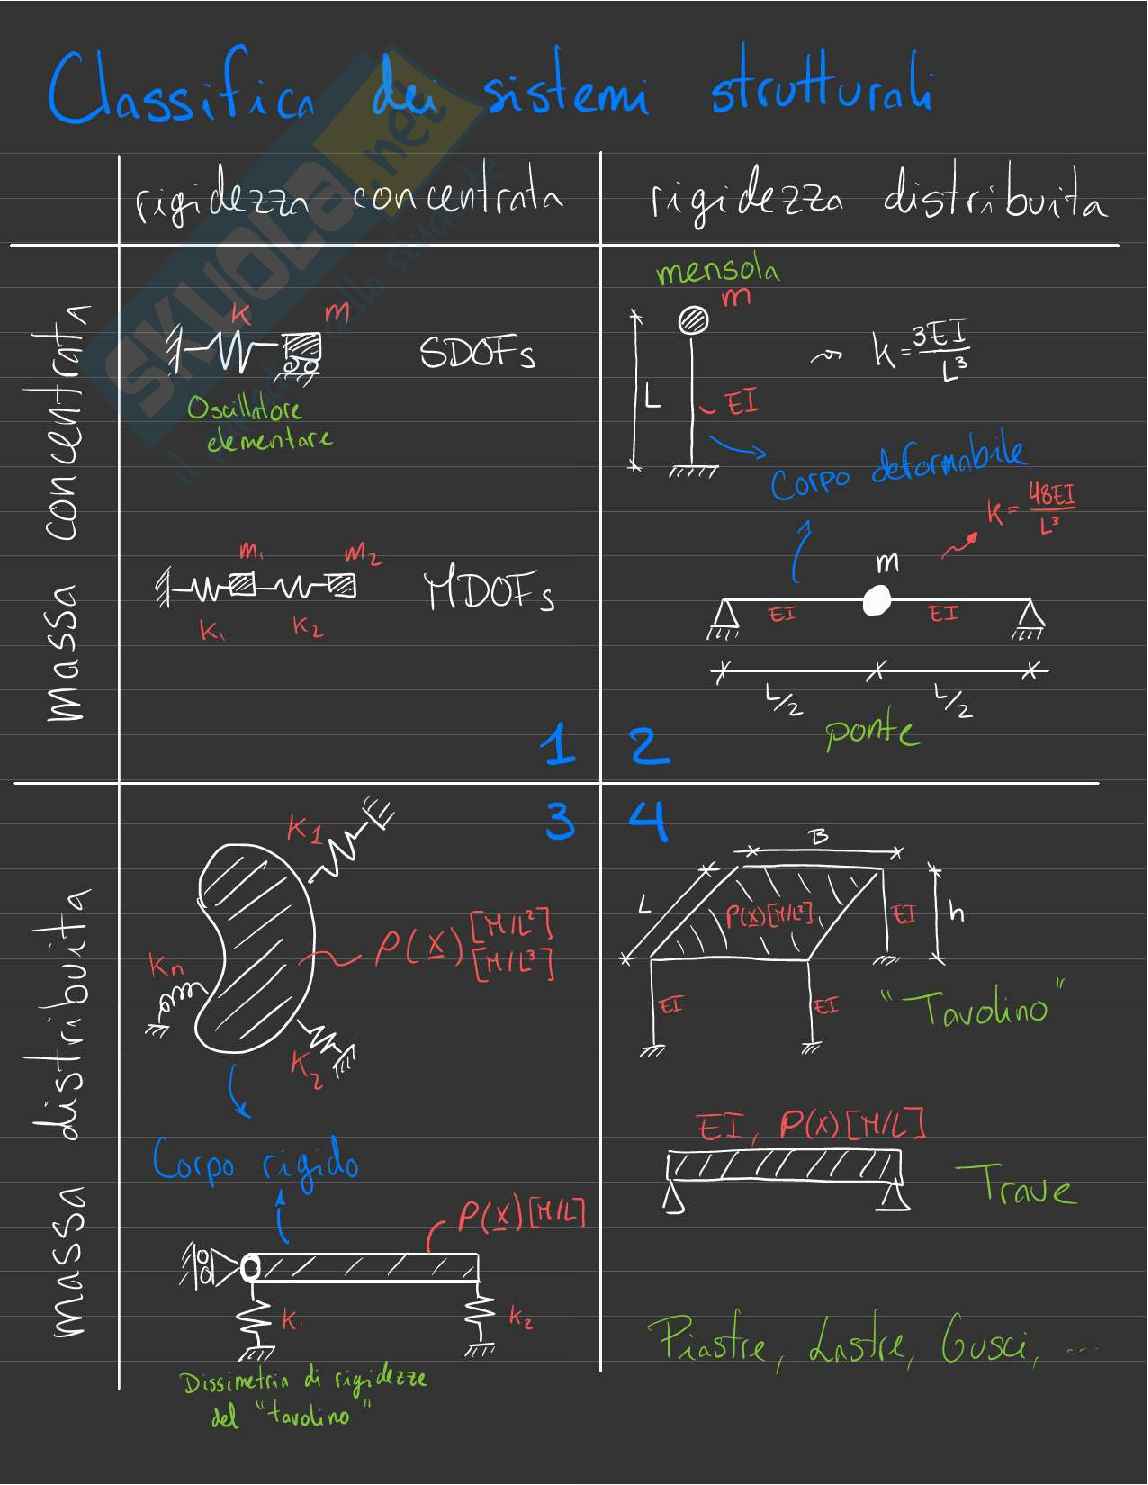 Classifica dei sistemi strutturali
rigidezza concentrata
rigidezza distribuita
massa concentrata
K m
SDOFs
Oscillatore
elementare
m₁ m₂
MDOFs
K₁ K₂
1
mensola
m
L
EI
k = 3EI/L³
Corpo deformabile
k = 48EI/L³
m
EI EI
L/2 L/2
ponte
2
massa distribuita
3
K₁
ρ(x) [M/L²]
[M/L³]
Kn
K₂
Corpo rigido
ρ(x) [M/L]
K K₂
Dissimetria di rigidezze
del "tavolino"
4
B
L
ρ(x)[M/L²]
EI
h
EI EI
"Tavolino"
EI, ρ(x)[M/L]
Trave
Piastre, Lastre, Gusci, ...
SKUOLA.net